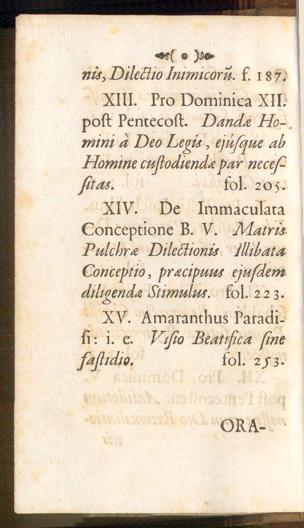 nis, Dilectio Inimicorũ. f. 187.
XIII. Pro Dominica XII.
post Pentecost. Dandæ Ho-
mini à Deo Legis, ejúsque ab
Homine custodiendæ par neces-
sitas. fol. 205.
XIV. De Immaculata
Conceptione B. V. Matris
Pulchræ Dilectionis Illibata
Conceptio, præcipuus ejusdem
diligendæ Stimulus. fol. 223.
XV. Amaranthus Paradi-
si: i. e. Visio Beatifica sine
fastidio. fol. 253.
ORA-